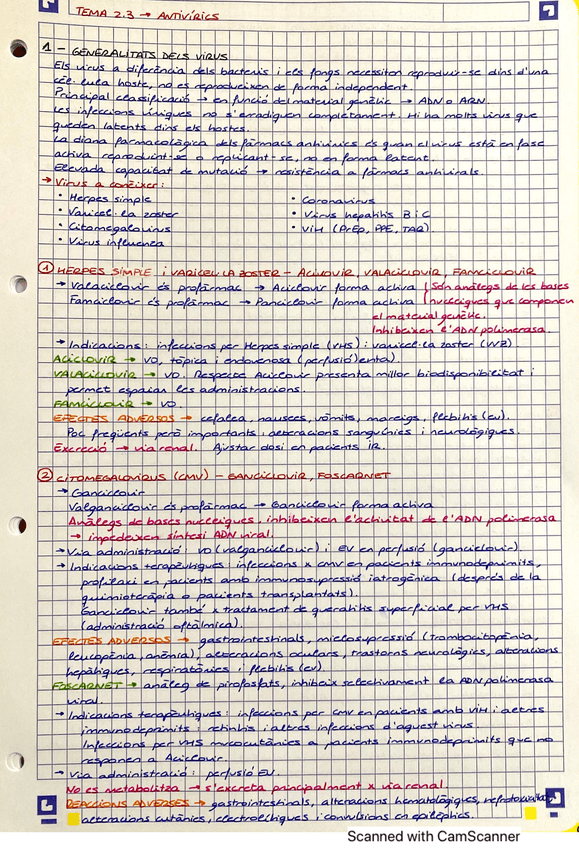 TEMA 2.3 → ANTIVÍRICS
1 - GENERALITATS DELS VIRUS
Els virus a diferència dels bacteris i els fongs necessiten reproduir-se dins d'una
cèl·lula hoste, no es reprodueixen de forma independent.
Principal classificació → en funció del material genètic → ADN o ARN.
Les infeccions víriques no s'erradiquen completament. Hi ha molts virus que
queden latents dins els hostes.
La diana farmacològica dels fàrmacs antivírics és quan el virus està en fase
activa reproduint-se o replicant-se, no en forma latent.
Elevada capacitat de mutació → resistència a fàrmacs antivirals.
→ Virus a conèixer:
• Herpes simple
• Varicel·la zoster
• Citomegalovirus
• Virus influenza
• Coronavirus
• Virus hepatitis B i C
• VIH (PrEp, PPE, TAR)
① HERPES SIMPLE i VARICEL·LA ZOSTER - ACICLOVIR, VALACICLOVIR, FAMCICLOVIR
→ Valaciclovir és profàrmac → Aciclovir forma activa
Famciclovir és profàrmac → Penciclovir forma activa
Són anàlegs de les bases
nucleiques que componen
el material genètic.
Inhibeixen l'ADN polimerasa.
→ Indicacions: infeccions per Herpes simple (VHS) i varicel·la zoster (VVZ).
ACICLOVIR → VO, tòpica i endovenosa (perfusió lenta).
VALACICLOVIR → VO. Respecte Aciclovir presenta millor biodisponibilitat i
permet espaiar les administracions.
FAMCICLOVIR → VO.
EFECTES ADVERSOS → cefalea, nausees, vòmits, mareigs, flebitis (EV).
Poc freqüents però importants: alteracions sanguínies i neurològiques.
Excreció → via renal. Ajustar dosi en pacients IR.
② CITOMEGALOVIRUS (CMV) - GANCICLOVIR, FOSCARNET
→ Ganciclovir
Valganciclovir és profàrmac → Ganciclovir forma activa
Anàlegs de bases nucleiques, inhibeixen l'activitat de l'ADN polimerasa
→ impedeixen síntesi ADN viral.
→ Via administració: VO (valganciclovir) i EV en perfusió (ganciclovir)
→ Indicacions terapèutiques: infeccions x CMV en pacients immunodeprimits,
profilaxi en pacients amb immunosupressió iatrogènica (després de la
quimioteràpia o pacients transplantats).
Ganciclovir també x tractament de queratitis superficial per VHS
(administració oftàlmica).
EFECTES ADVERSOS → gastrointestinals, mielosupressió (trombocitopènia,
leucopènia, anèmia), alteracions oculars, trastorns neurològics, alteracions
hepàtiques, respiratòries i flebitis (EV).
FOSCARNET → anàleg de pirofosfats, inhibeix selectivament la ADN polimerasa
viral.
→ Indicacions terapèutiques: infeccions per CMV en pacients amb VIH i altres
immunodeprimits i retinitis i altres infeccions d'aquest virus.
Infeccions per VHS mucocutànies a pacients immunodeprimits que no
responen a Aciclovir.
→ Via administració: perfusió EV.
No es metabolitza → s'excreta principalment x via renal.
REACCIONS ADVERSES → gastrointestinals, alteracions hematològiques, nefrotoxicitat,
alteracions cutànies, electrolítiques i convulsions en epilèptics.
Scanned with CamScanner